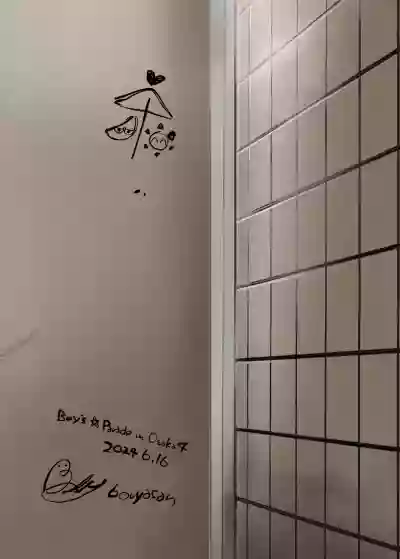 Boy's ☆ Parade in Osaka
2024 6.16
bouyatan